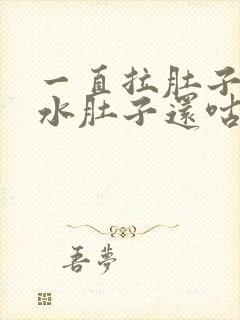 一直拉肚子
水肚子還咕
吾夢